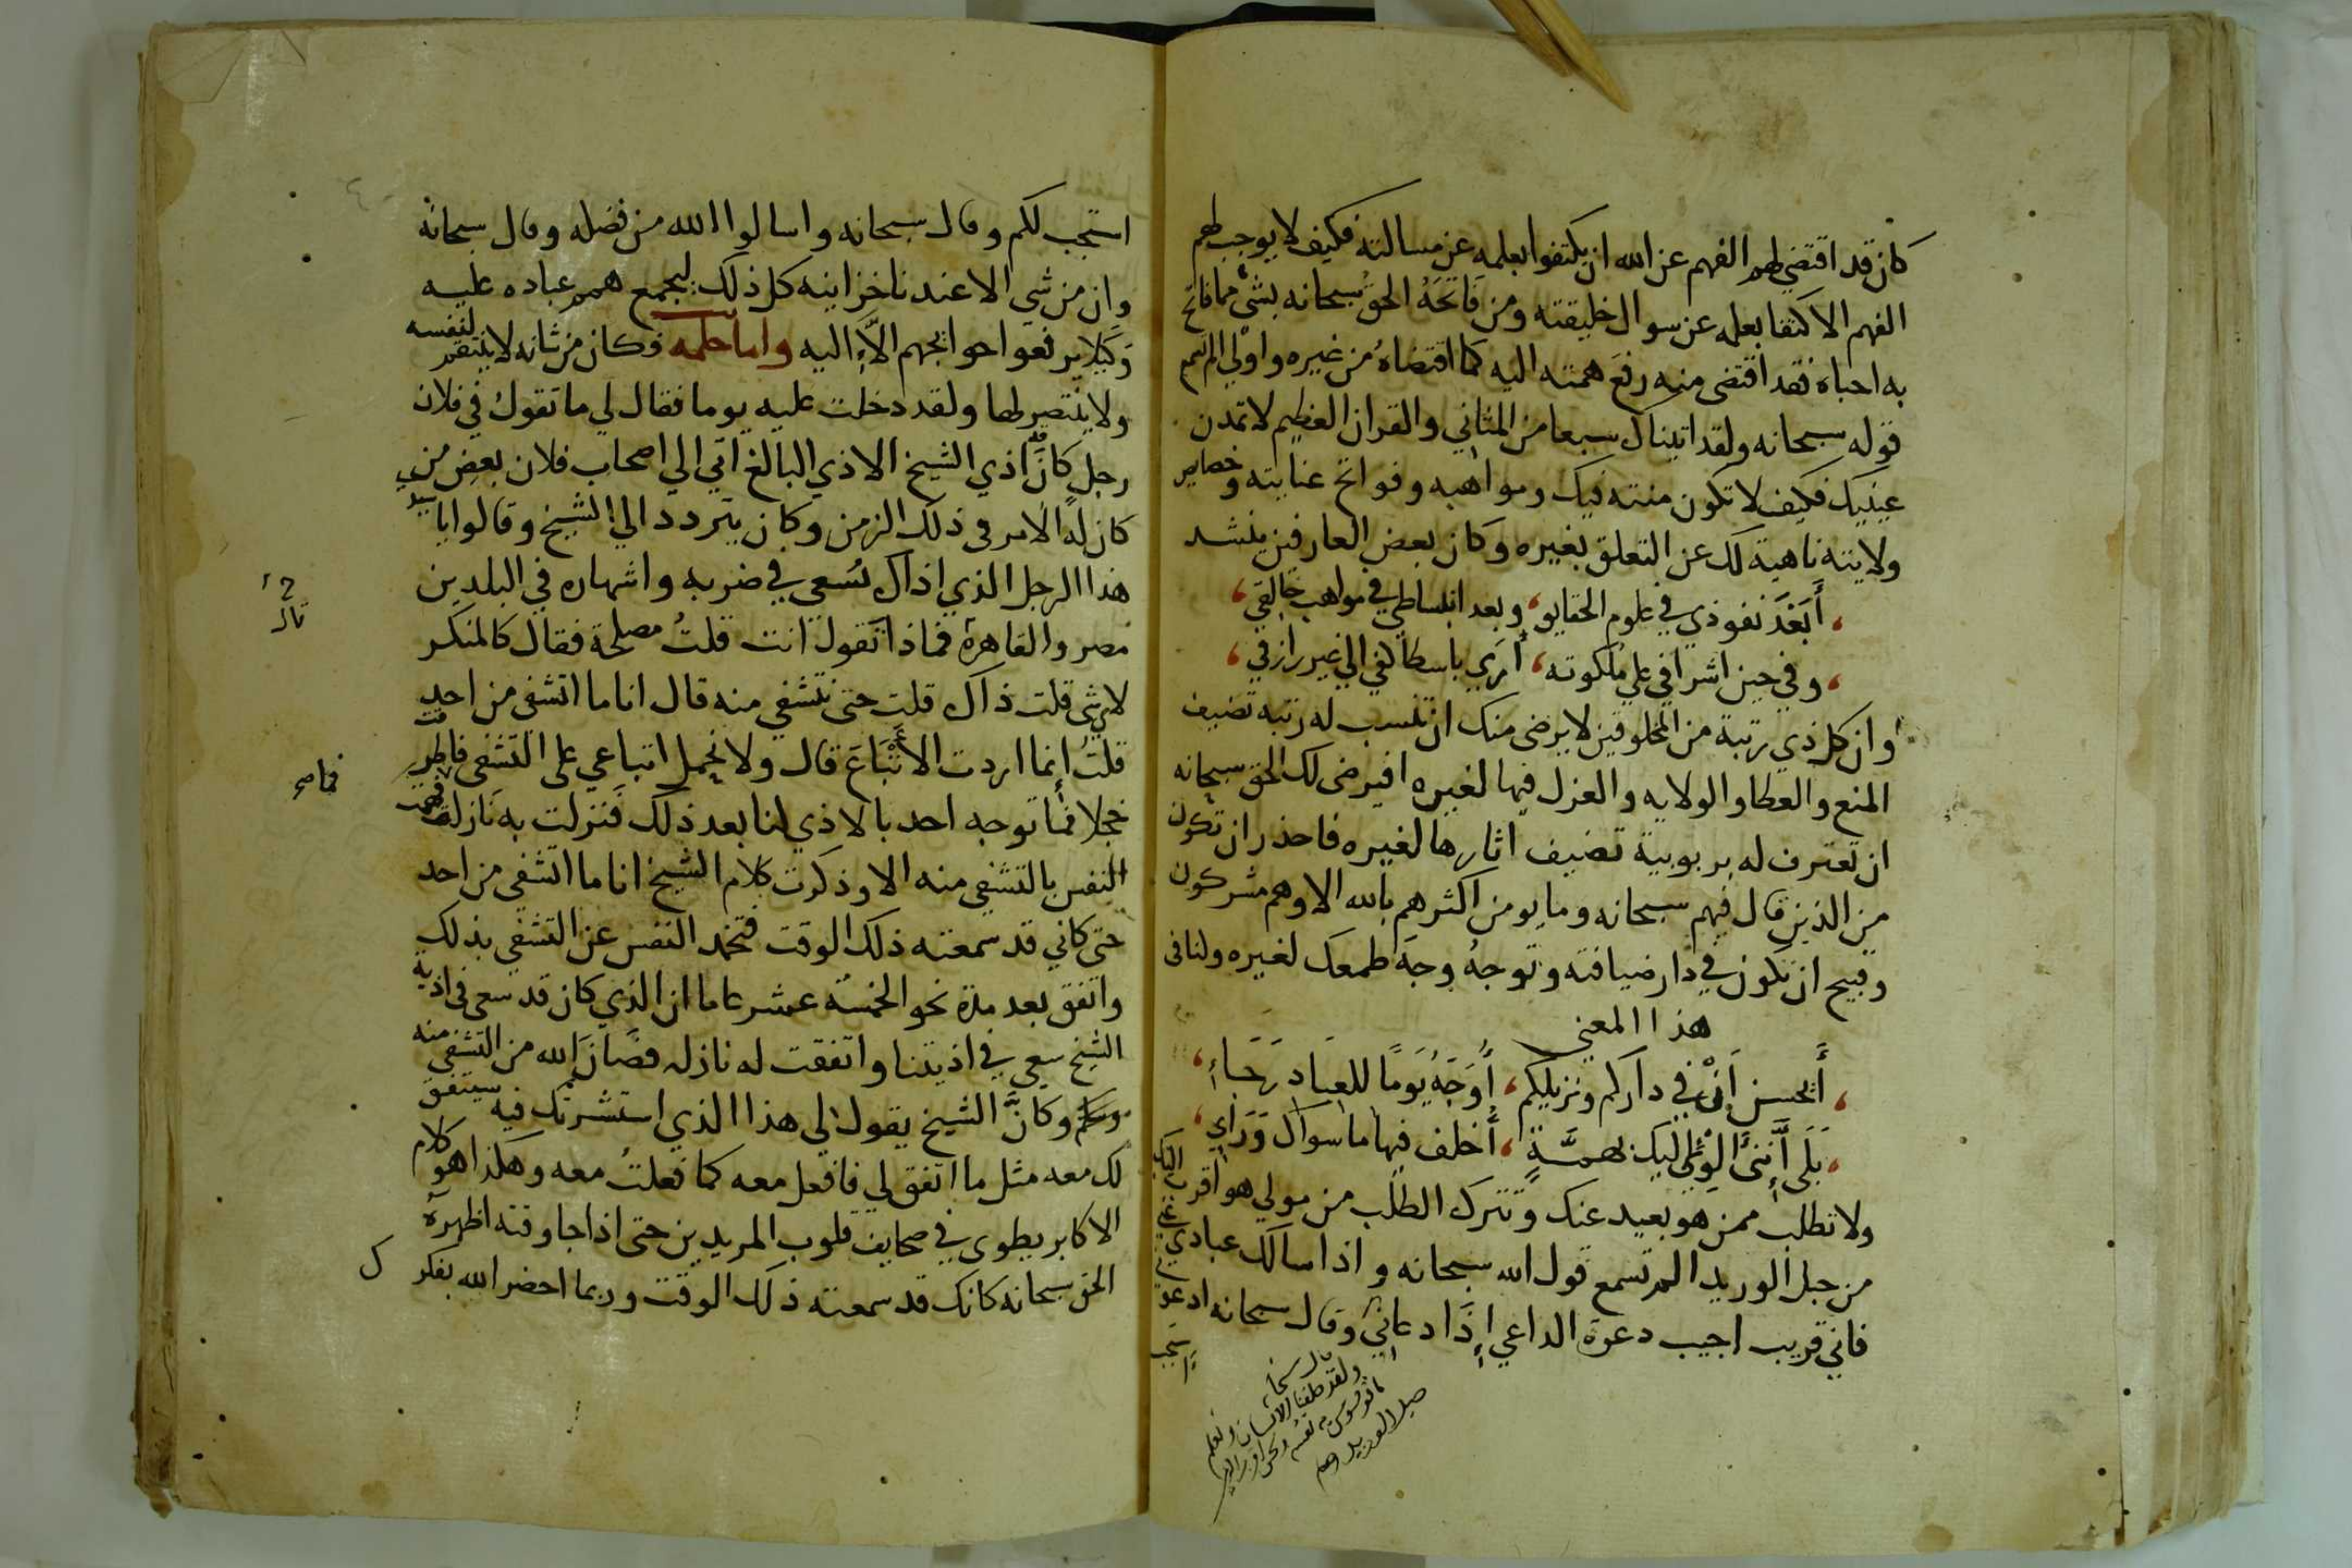 كان قد اقتضي لهم الفهم عن الله ان يكتفوا بعلمه عن مسالته فكيف لا يوجب لهم
الفهم الاكتفا بعلمه عن سوال خليقته ومن فَاتَحَهُ الحق سبحانه بشي مما فاتح
به احباه فقد اقتضى منه رفع همته اليه كما اقتضاهُ من غيره واولي الم تسمع
قوله سبحانه ولقد اتيناك سبعا من المثاني والقران العظيم لا تمدن
عينيك فكيف لا تكون منته فيك ومواهبه وفواتح عنايته وخصايص
ولايته ناهية لك عن التعلق بغيره وكان بعض العارفين ينشد
، أبَعْدَ نفوذي في علوم الحقايق ، وبعد انبساطي في مواهب خالقي ،
، وفي حين اشرافي علي ملكوته ، أُرَي باسطا كفي الي غير رازقي ،
وان كل ذي رتبة من المخلوقين لا يرضى منك ان تنسب له رتبه تضيف
المنع والعطا والولايه والعزل فيها لغيره افيرضى لك الحق سبحانه
ان تعترف له بربوبية تضيف اثارها لغيره فاحذر ان تكون
من الذين قال فيهم سبحانه وما يومن اكثرهم بالله الا وهم مشركون
وقبيح ان تكون في دار ضيافته وتوجهُ وجهَ طمعك لغيره ولنا في
هذا المعني
، أَيحسن اَنِّي في داركم ونزيلكم ، أُوَجِّهُ يَومًا للعِبَادِ رَجَاءِ ،
، بَلَى أَنَّنِي أَلْوِي اليك بهمَّةٍ ، أُخلف فيها ما سواك وَرَاي ،
ولا تطلب ممن هو بعيد عنك وتترك الطلب من مولي هو اقرب اليك
من حبل الوريد الم تسمع قول الله سبحانه واذا سالك عبادي عني
فاني قريب اجيب دعوة الداعي إذَا دعاني وقال سبحانه ادعوني
استجب
ولقد خلقنا الانسان ونعلم
ما توسوس به نفسه ونحن اقرب اليه
حبل الوريد
استجب لكم وقال سبحانه واسالوا الله من فضله وقال سبحانه
وان من شي الا عندنا خزاينه كل ذلك ليجمع همم عباده عليه
وَكَيلا يرفعوا حوايجهم الاَّ اليه واما حلمه فكان من شانه لا ينتقم لنفسه
ولا ينتصر لها ولقد دخلت عليه يوما فقال لي ما تقول في فلان
رجل كان قد اذي الشيخ الاذي البالغ اتي الي اصحاب فلان بعض من
كان لهُ الامر في ذلك الزمن وكان يتردد الي الشيخ وقالوا يا سيدي
هذا الرجل الذي اذاك نُسعي في ضربه واشهاره في البلدين
مصر والقاهرة فماذا تقول انت قلتُ مصلحة فقال كالمنكر
لاي شي قلت ذاك قلت حتى نتشفي منه قال انا ما اتشفى من احد
قلتُ إنما اردت الأَتْبَاعَ قال ولا نحمل اتباعي على التشفي فاطرقت
خجلا فما توجه احد بالاذي لنا بعد ذلك فنزلت به نازلة فهمت
النفس بالتشفي منه الا وذكرت كلام الشيخ انا ما اتشفى من احد
حتى كاني قد سمعته ذلك الوقت فتخمد النفس عن التشفي بذلك
واتفق بعد مدة نحو الخمسة عشر عاما ان الذي كان قد سعى في اذية
الشيخ سعي في اذيتنا واتفقت له نازله فصَان الله من التشفي منه
وكانَّ الشيخ يقول لي هذا الذي استشرتك فيه سيتفق
لك معه مثل ما اتفق لي فافعل معه كما فعلتُ معه وهكذا هو كلام
الاكابر يطوى في صحايف قلوب المريدين حتى اذا جا وقته اظهره
الحق سبحانه كانك قد سمعته ذلك الوقت وربما احضر الله بفكر ك